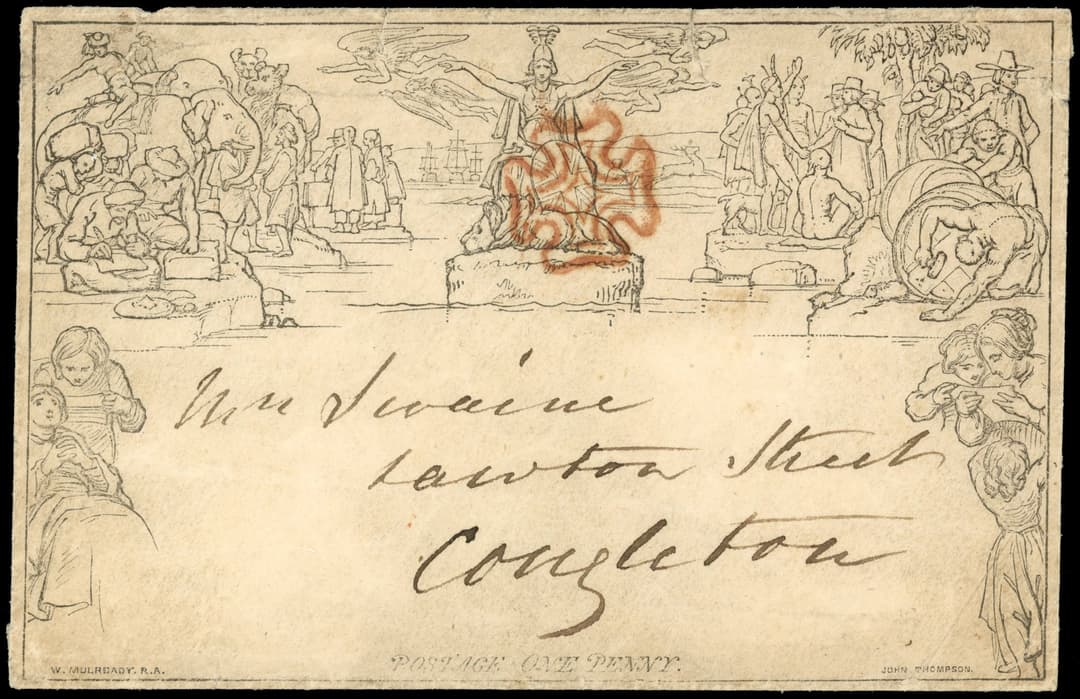 Mrs Swaine
Lawton Street
Congleton
POSTAGE ONE PENNY.
W. MULREADY. R.A.
JOHN THOMPSON.